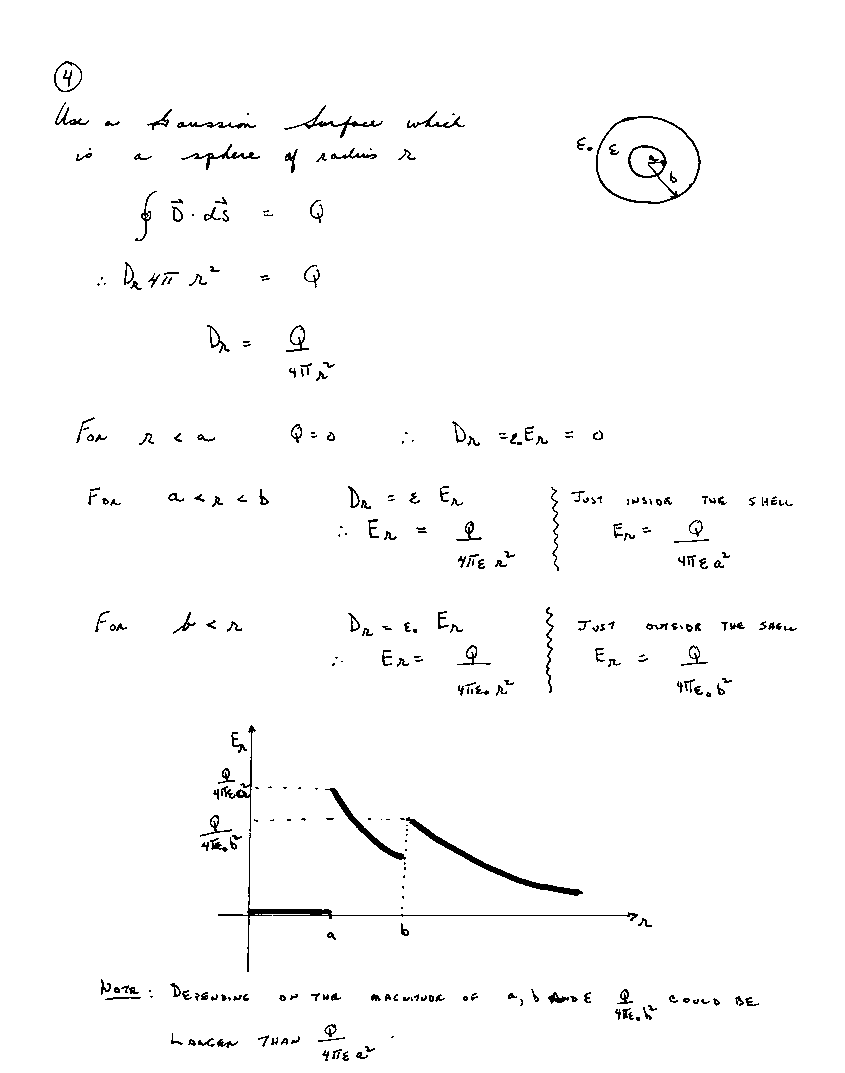 4
Use a Gaussian Surface which
is a sphere of radius r
ε₀ ε a b
∮ D⃗ · ds⃗ = Q
∴ Dr 4π r² = Q
Dr = Q / 4π r²
For r < a Q = 0 ∴ Dr = ε₀Er = 0
For a < r < b Dr = ε Er JUST INSIDE THE SHELL
∴ Er = Q / 4πε r² Er = Q / 4πε a²
For b < r Dr = ε₀ Er JUST OUTSIDE THE SHELL
∴ Er = Q / 4πε₀ r² Er = Q / 4πε₀ b²
Er
Q / 4πε a²
Q / 4πε₀ b²
a b r
NOTE: DEPENDING ON THE MAGNITUDE OF a, b AND ε Q / 4πε₀ b² COULD BE
LARGER THAN Q / 4πε a² .